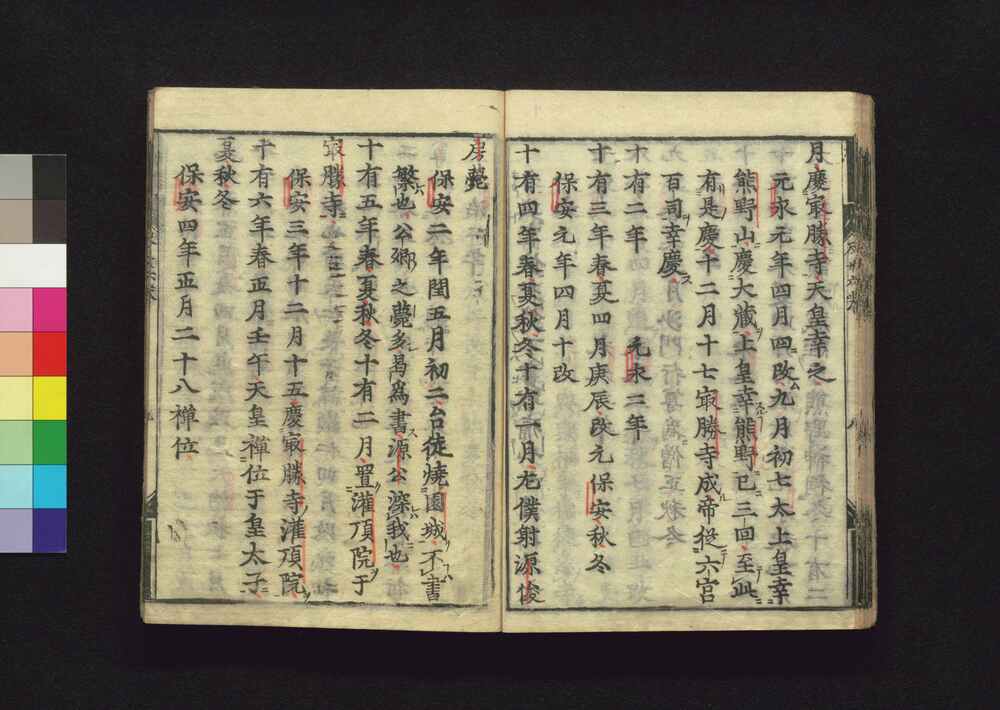 月慶㝡勝寺天皇幸之
元永元年四月四改九月初七太上皇幸
熊野山慶大藏上皇幸熊野已三回至此
有是慶十二月十七㝡勝寺成帝從六宮
百司幸慶
十有二年　元永二年
十有三年春夏四月庚辰改元保安秋冬
保安元年四月十改
十有四年春夏秋冬十有一月左僕射源俊
房薨
保安二年閏五月初二台徒燒園城不書
繁也公卿之薨多曷為書源公深我也
十有五年春夏秋冬十有二月置灌頂院于
㝡勝寺
保安三年十二月十五慶㝡勝寺灌頂院
十有六年春正月壬午天皇禪位于皇太子
夏秋冬
保安四年正月二十八禪位